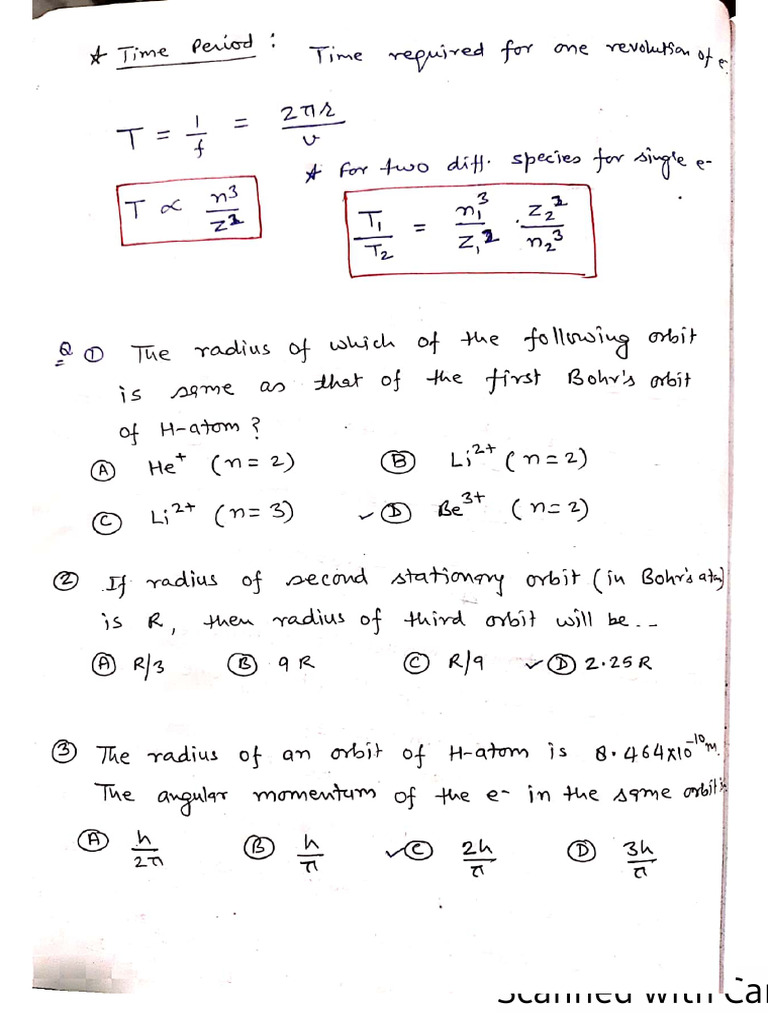 * Time Period : Time required for one revolution of e-
T = 1/f = 2πr/v
* For two diff. species for single e-
T ∝ n³/Z²
T₁/T₂ = n₁³/Z₁² . Z₂²/n₂³
Q ① The radius of which of the following orbit
is same as that of the first Bohr's orbit
of H-atom ?
Ⓐ He⁺ (n = 2) Ⓑ Li²⁺ (n = 2)
Ⓒ Li²⁺ (n = 3) ✓Ⓓ Be³⁺ (n = 2)
② If radius of second stationary orbit (in Bohr's atm)
is R, then radius of third orbit will be . --
Ⓐ R/3 Ⓑ 9 R Ⓒ R/9 ✓Ⓓ 2.25 R
③ The radius of an orbit of H-atom is 8.464×10⁻¹⁰ m.
The angular momentum of the e- in the same orbit is
Ⓐ h/2π Ⓑ h/π ✓Ⓒ 2h/π Ⓓ 3h/π
Scanned with